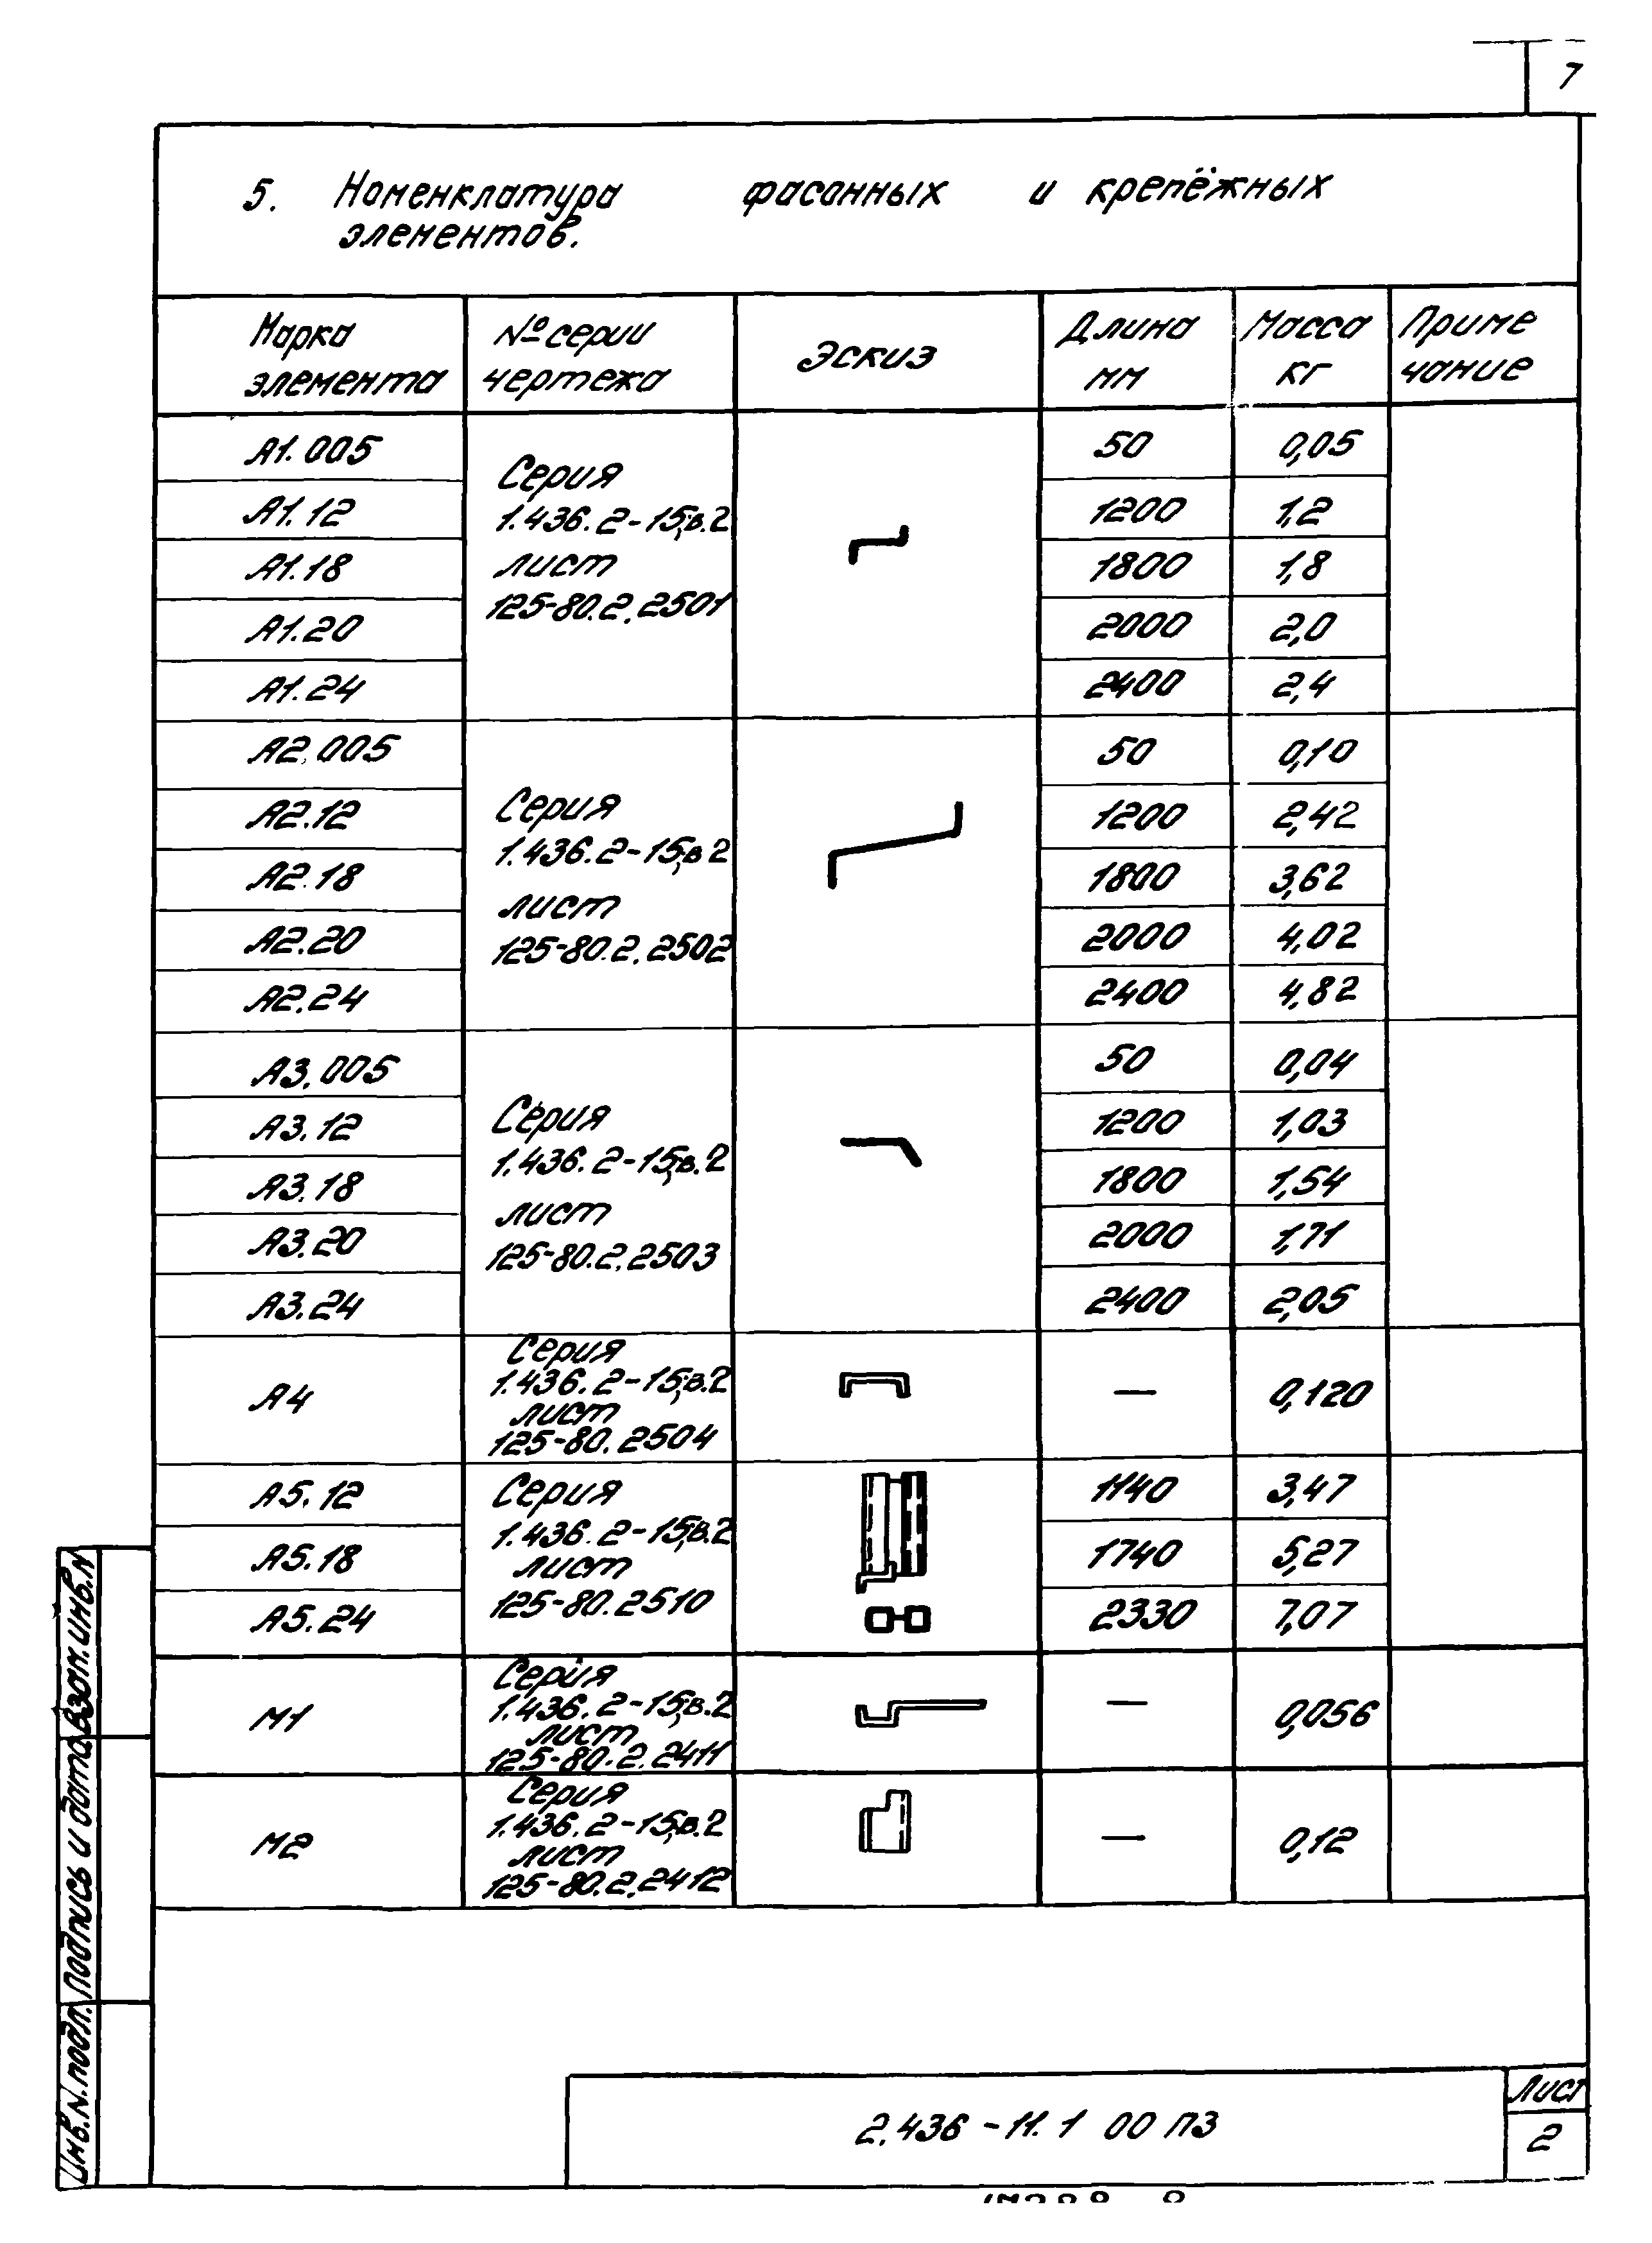 7
5. Номенклатура фасонных и крепёжных
элементов.
Марка
элемента
№ серии
чертежа
Эскиз
Длина
мм
Масса
кг
Приме
чание
А1.005
50
0,05
А1.12
1200
1,2
А1.18
1800
1,8
А1.20
2000
2,0
А1.24
2400
2,4
Серия
1.436.2-15,в.2
лист
125-80.2.2501
А2.005
50
0,10
А2.12
1200
2,42
А2.18
1800
3,62
А2.20
2000
4,02
А2.24
2400
4,82
Серия
1.436.2-15,в 2
лист
125-80.2.2502
А3.005
50
0,04
А3.12
1200
1,03
А3.18
1800
1,54
А3.20
2000
1,71
А3.24
2400
2,05
Серия
1.436.2-15,в.2
лист
125-80.2.2503
А4
Серия
1.436.2-15,в.2
лист
125-80.2504
—
0,120
А5.12
1140
3,47
А5.18
1740
5,27
А5.24
2330
7,07
Серия
1.436.2-15,в.2
лист
125-80.2510
М1
Серия
1.436.2-15,в.2
лист
125-80.2.2411
—
0,056
М2
Серия
1.436.2-15,в.2
лист
125-80.2.2412
—
0,12
Взам.инв.N
Подпись и дата
Инв.N.подл.
2.436-11.1 00 ПЗ
Лист
2